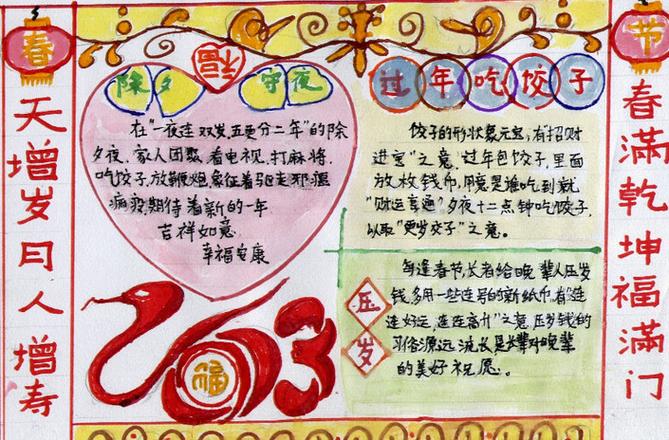 春
天增岁月人增寿
福
除夕 守夜
在"一夜连双岁五更分二年"的除
夕夜，家人团聚，看电视，打麻将，
吃饺子，放鞭炮，象征着驱走邪瘟
病疫，期待着新的一年
吉祥如意
幸福安康
福
过年吃饺子
饺子的形状象元宝，有招财
进宝"之意，过年包饺子，里面
放枚钱币，用意是谁吃到就
"财运亨通"夕夜十二点钟吃饺子，
以取"更岁交子"之意。
每逢春节，长者给晚辈人压岁
钱，多用一些连号的新纸币，有"连
连好运，连连高升"之意，压岁钱的
习俗源远流长，是长辈对晚辈
的美好祝愿。
压
岁
节
春满乾坤福满门